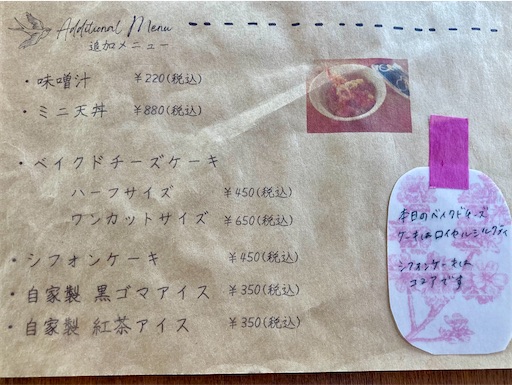 Additional Menu
追加メニュー
・味噌汁 ￥220(税込)
・ミニ天丼 ￥880(税込)
・ベイクドチーズケーキ
ハーフサイズ ￥450(税込)
ワンカットサイズ ￥650(税込)
・シフォンケーキ ￥450(税込)
・自家製 黒ゴマアイス ￥350(税込)
・自家製 紅茶アイス ￥350(税込)
本日のベイクドチーズ
ケーキはロイヤルミルクティ
シフォンケーキは
ココアです